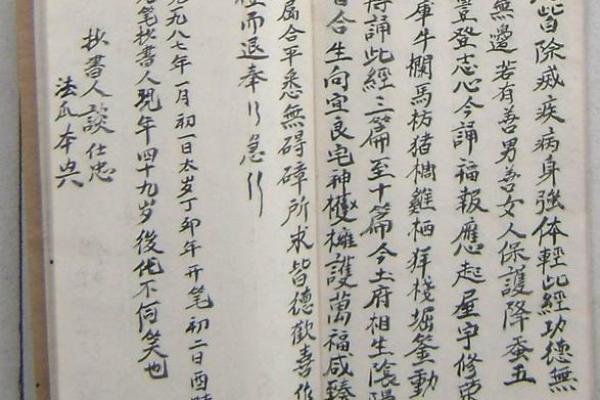 皆除滅疾病身強体輕此經功德無
無邊若有善男善女人保護降蚕五
豊登志心今誦福報應起屋宇修
庫牛欄馬枋猪椆雞栖羊棧堀窰動
誦此經三篇至十篇今土府相生陰陽
合生向宜良宅神擁護萬福咸臻
屬合平悉無碍障所求皆德歡喜作
而退奉行急行
九八七年一月初一日太岁丁卯年开笔初二日酉時
笔抄書人現年四十九岁後代不何笑也
抄書人談仕忠
法爪本兴